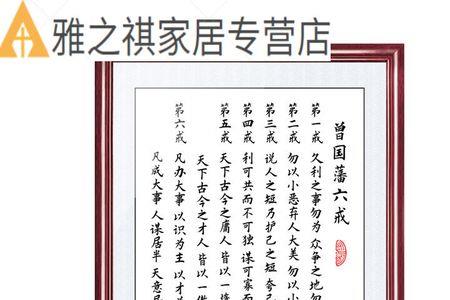 雅之祺家居专营店
曾国藩六戒
第一戒 久利之事勿为 众争之地勿
第二戒 勿以小恶弃人大美 勿以小
第三戒 说人之短乃护己之短 夸己
第四戒 利可共而不可独 谋可寡而
第五戒 天下古今之庸人 皆以一
天下古今之才人 皆以一
第六戒 凡办大事 以识为主 以才
凡成大事 人谋居半 天意